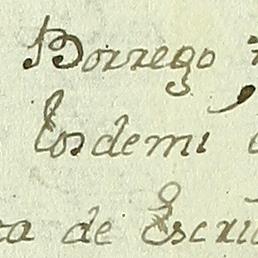 Borrego
los demi
ta de Escri